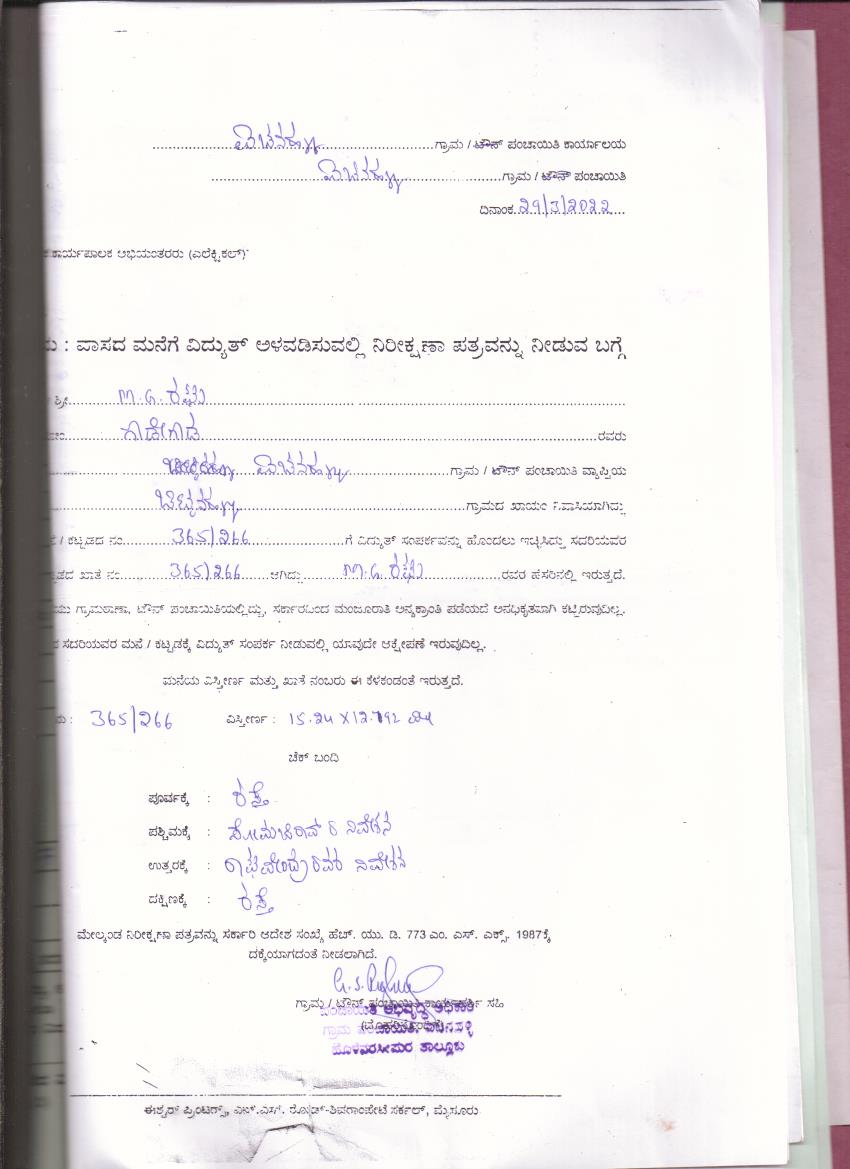 ಗ್ರಾಮ / ಟೌನ್ ಪಂಚಾಯಿತಿ ಕಾರ್ಯಾಲಯ
ಗ್ರಾಮ / ಟೌನ್ ಪಂಚಾಯಿತಿ
ದಿನಾಂಕ 29/3/2022
ಕಾರ್ಯಪಾಲಕ ಅಭಿಯಂತರರು (ಎಲೆಕ್ಟ್ರಿಕಲ್)
: ವಾಸದ ಮನೆಗೆ ವಿದ್ಯುತ್ ಅಳವಡಿಸುವಲ್ಲಿ ನಿರೀಕ್ಷಣಾ ಪತ್ರವನ್ನು ನೀಡುವ ಬಗ್ಗೆ
ಶ್ರೀ M.G.
ರವರು
ಗ್ರಾಮ / ಟೌನ್ ಪಂಚಾಯಿತಿ ವ್ಯಾಪ್ತಿಯ
ಗ್ರಾಮದ ಖಾಯಂ ನಿವಾಸಿಯಾಗಿದ್ದು
/ ಕಟ್ಟಡದ ನಂ 365/266 ಗೆ ವಿದ್ಯುತ್ ಸಂಪರ್ಕವನ್ನು ಹೊಂದಲು ಇಚ್ಛಿಸಿದ್ದು ಸದರಿಯವರ
ಖಾತೆ ನಂ 365/266 ಆಗಿದ್ದು M.G. ರವರ ಹೆಸರಿನಲ್ಲಿ ಇರುತ್ತದೆ.
ಗ್ರಾಮಠಾಣಾ, ಟೌನ್ ಪಂಚಾಯಿತಿಯಲ್ಲಿದ್ದು, ಸರ್ಕಾರದಿಂದ ಮಂಜೂರಾತಿ ಅನ್ಯಕ್ರಾಂತಿ ಪಡೆಯದೆ ಅನಧಿಕೃತವಾಗಿ ಕಟ್ಟಿರುವುದಿಲ್ಲ.
ಸದರಿಯವರ ಮನೆ / ಕಟ್ಟಡಕ್ಕೆ ವಿದ್ಯುತ್ ಸಂಪರ್ಕ ನೀಡುವಲ್ಲಿ ಯಾವುದೇ ಆಕ್ಷೇಪಣೆ ಇರುವುದಿಲ್ಲ.
ಮನೆಯ ವಿಸ್ತೀರ್ಣ ಮತ್ತು ಖಾತೆ ನಂಬರು ಈ ಕೆಳಕಂಡಂತೆ ಇರುತ್ತದೆ.
: 365/266 ವಿಸ್ತೀರ್ಣ : 15.24 X 12.192
ಚೆಕ್ ಬಂದಿ
ಪೂರ್ವಕ್ಕೆ : ರಸ್ತೆ
ಪಶ್ಚಿಮಕ್ಕೆ : ನಿವೇಶನ
ಉತ್ತರಕ್ಕೆ : ನಿವೇಶನ
ದಕ್ಷಿಣಕ್ಕೆ : ರಸ್ತೆ
ಮೇಲ್ಕಂಡ ನಿರೀಕ್ಷಣಾ ಪತ್ರವನ್ನು ಸರ್ಕಾರಿ ಆದೇಶ ಸಂಖ್ಯೆ ಹೆಚ್. ಯು. ಡಿ. 773 ಎಂ. ಎಸ್. ಎಕ್ಸ್. 1987ಕ್ಕೆ
ದಕ್ಕೆಯಾಗದಂತೆ ನೀಡಲಾಗಿದೆ.
ಗ್ರಾಮ / ಟೌನ್ ಪಂಚಾಯಿತಿ ಕಾರ್ಯದರ್ಶಿ ಸಹಿ
ಪಂಚಾಯಿತಿ ಅಭಿವೃದ್ಧಿ ಅಧಿಕಾರಿ
ಹೊಳೆನರಸೀಪುರ ತಾಲ್ಲೂಕು
ಈಶ್ವರ್ ಪ್ರಿಂಟರ್ಸ್, ಎನ್.ಎಸ್. ರೋಡ್-ಶಿವರಾಂಪೇಟೆ ಸರ್ಕಲ್, ಮೈಸೂರು